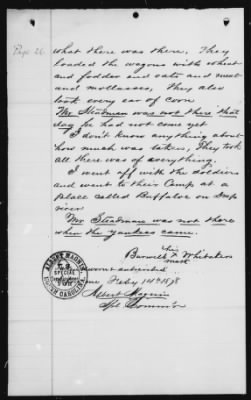 Page 26
what there was there, They
loaded the wagons with wheat
and fodder and oats and meat
and mollasses, They also
took every ear of Corn
Mr Steadman was not there that
day he had not come yet.
I don't know anything about
how much was taken, They took
all there was of everything.
I went off with the soldiers
and went to their Camp at a
place called Buffaloe on
river
Mr Steadman was not there
when the yankees came.
his
Burwell X Whitaker
mark
Sworn subscribed
Feby 14th 1878
Albert Magnin
Spl Commr
ALBERT MAGNIN
SPECIAL
NORTH CAROLINA